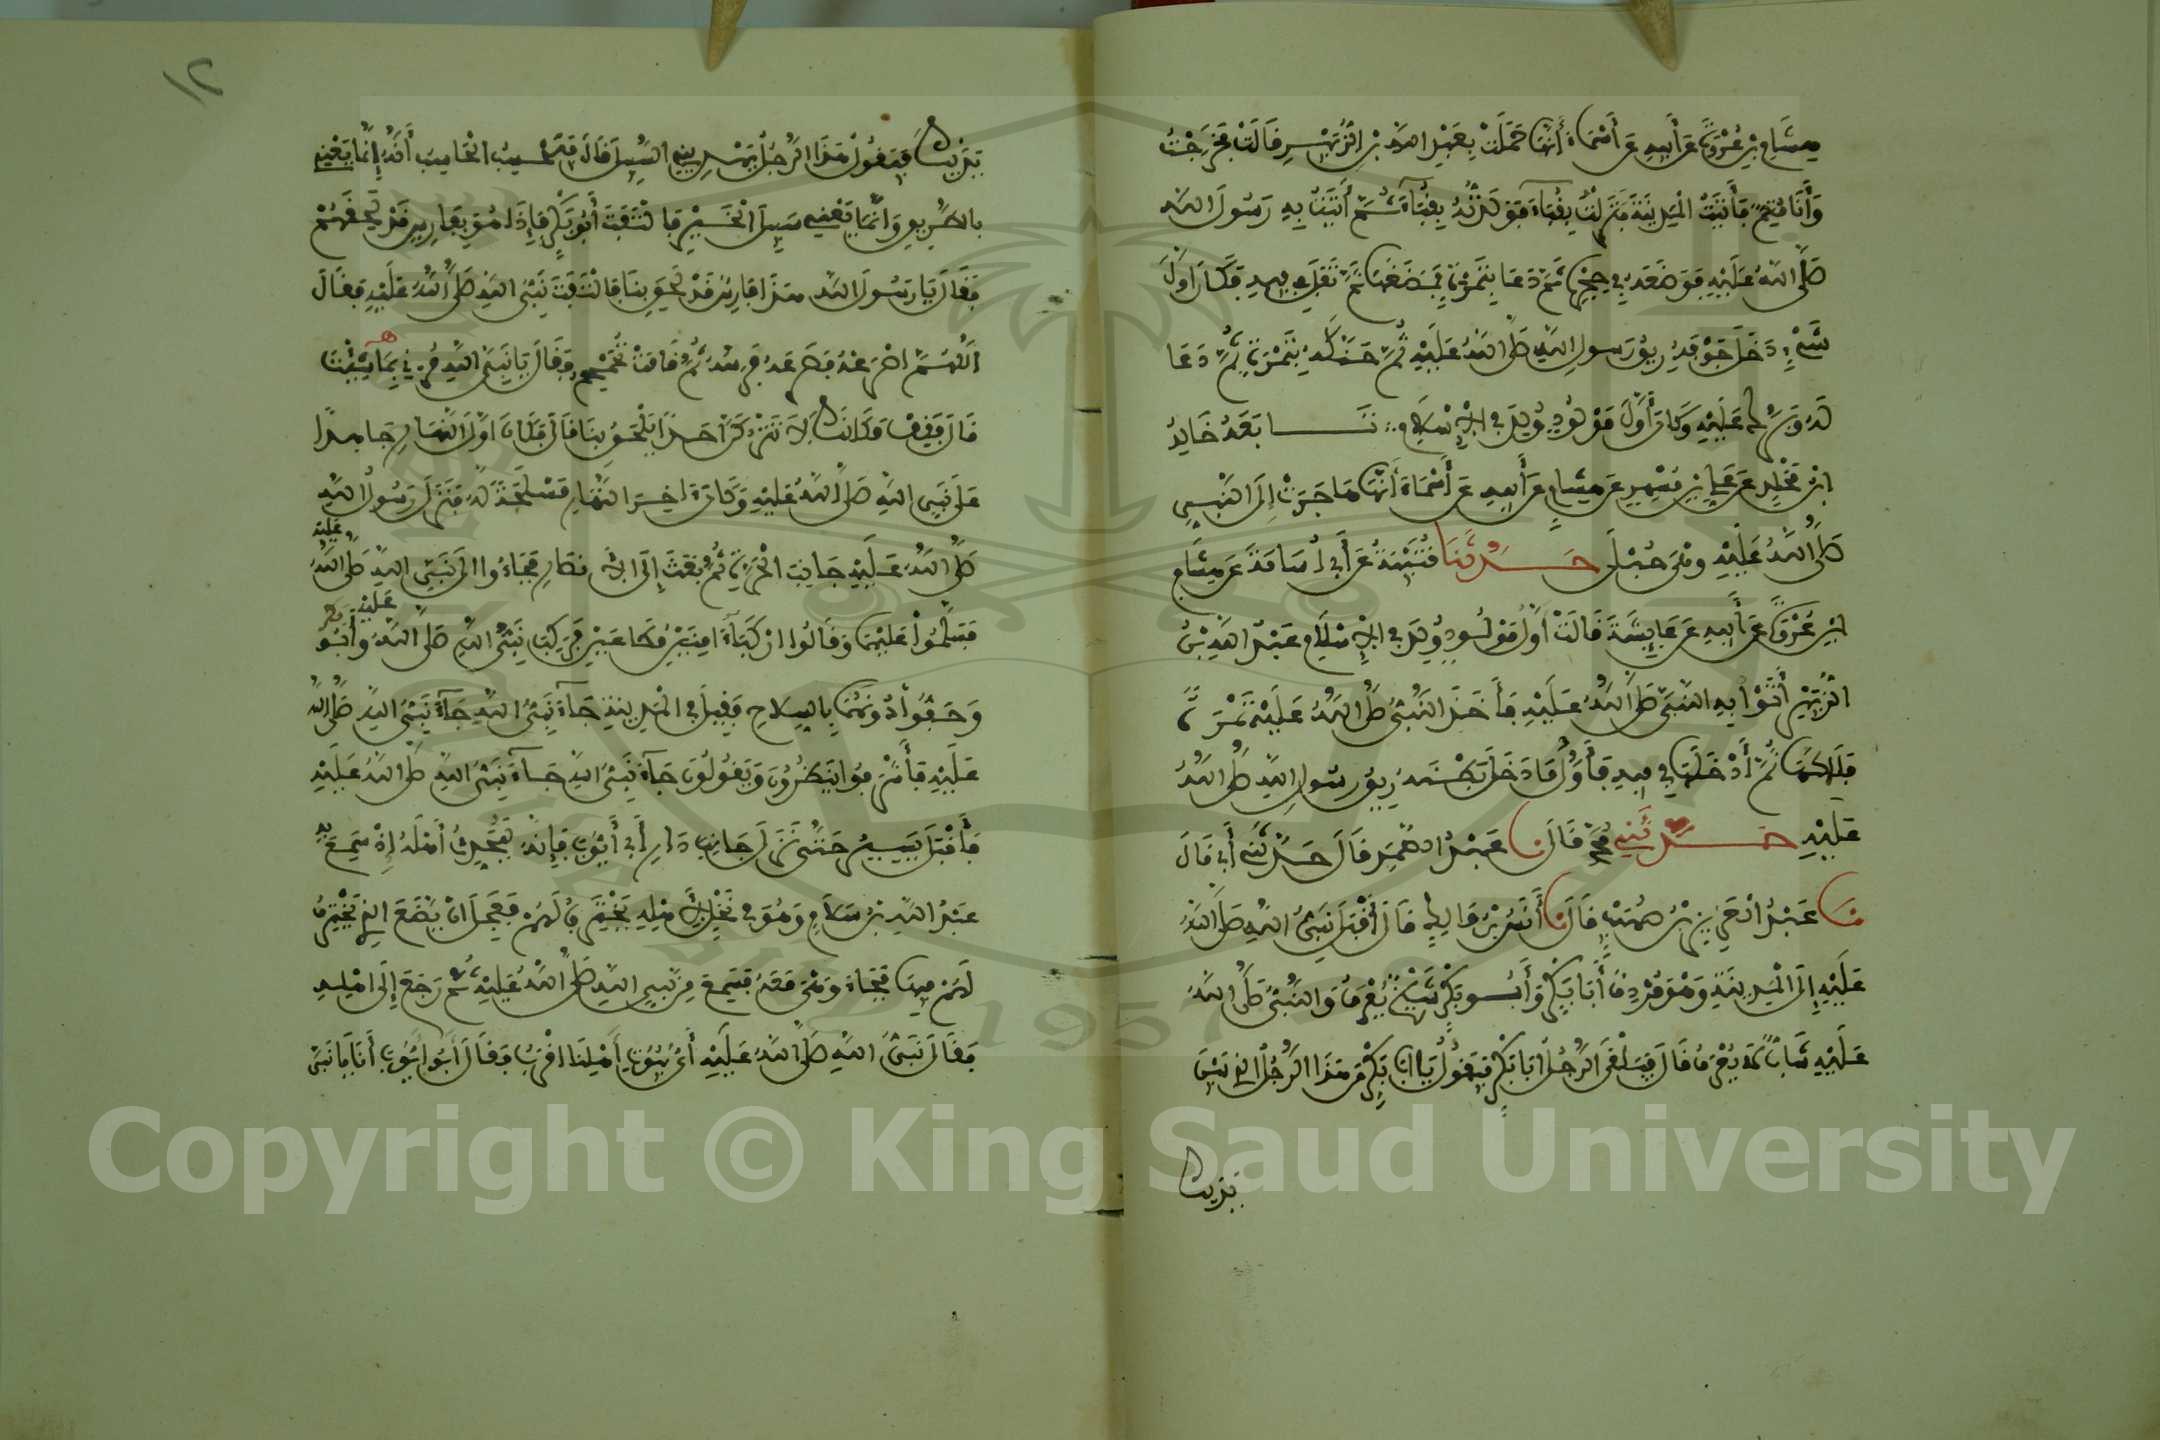 هشام بن عروة عن أبيه عن أسماء أنها حملت بعبد الله بن الزبير قالت فخرجت
وأنا متم فأتيت المدينة فنزلت بقباء فولدته بقباء ثم أتيت به رسول الله
صلى الله عليه فوضعه في حجره ثم دعا بتمرة فمضغها ثم تفل في فيه فكان أول
شيء دخل جوفه ريق رسول الله صلى الله عليه ثم حنكه بتمرة ثم دعا
له وبرك عليه وكان أول مولود ولد في الإسلام تابعه خالد
ابن مخلد عن علي بن مسهر عن هشام عن أبيه عن أسماء أنها هاجرت إلى النبي
صلى الله عليه وهي حبلى حدثنا قتيبة عن أبي أسامة عن هشام
ابن عروة عن أبيه عن عايشة قالت أول مولود ولد في الإسلام عبد الله بن
الزبير أتوا به النبي صلى الله عليه فأخذ النبي صلى الله عليه تمرة
فلاكها ثم أدخلها في فيه فأول ما دخل بطنه ريق رسول الله صلى الله
عليه حدثني محمد قال نا عبد الصمد قال حدثني أبي قال
نا عبد العزيز بن صهيب قال نا أنس بن مالك قال أقبل نبي الله صلى الله
عليه إلى المدينة وهو مردف أبا بكر وأبو بكر شيخ يعرف والنبي صلى الله
عليه شاب لا يعرف قال فيلقى الرجل أبا بكر فيقول يا أبا بكر من هذا الرجل الذي بين
بين يديك
١٢
بين يديك فيقول هذا الرجل يهديني السبيل قال فيحسب الحاسب أنه إنما يعني
بالطريق وإنما يعني سبيل الخير فالتفت أبو بكر فإذا هو بفارس قد لحقهم
فقال يا رسول الله هذا فارس قد لحق بنا فالتفت نبي الله صلى الله عليه فقال
اللهم اصرعه فصرعه فرسه ثم قامت تحمحم فقال يا نبي الله مرني بما شئت
قال فقف مكانك لا تتركن أحدا يلحق بنا قال فكان أول النهار جاهدا
على نبي الله صلى الله عليه وكان آخر النهار مسلحة له فنزل رسول الله
صلى الله عليه جانب الحرة ثم بعث إلى الأنصار فجاءوا إلى نبي الله صلى الله عليه
فسلموا عليهما وقالوا اركبا آمنين مطاعين فركب نبي الله صلى الله عليه وأبو بكر
وحفوا دونهما بالسلاح فقيل في المدينة جاء نبي الله جاء نبي الله صلى الله
عليه فأشرفوا ينظرون ويقولون جاء نبي الله جاء نبي الله صلى الله عليه
فأقبل يسير حتى نزل جانب دار أبي أيوب فإنه ليحدث أهله إذ سمع به
عبد الله بن سلام وهو في نخل لأهله يخترف لهم فعجل أن يضع الذي يخترف
لهم فيها فجاء وهي معه فسمع من نبي الله صلى الله عليه ثم رجع إلى أهله
فقال نبي الله صلى الله عليه أي بيوت أهلنا أقرب فقال أبو أيوب أنا يا نبي
Copyright © King Saud University
1957